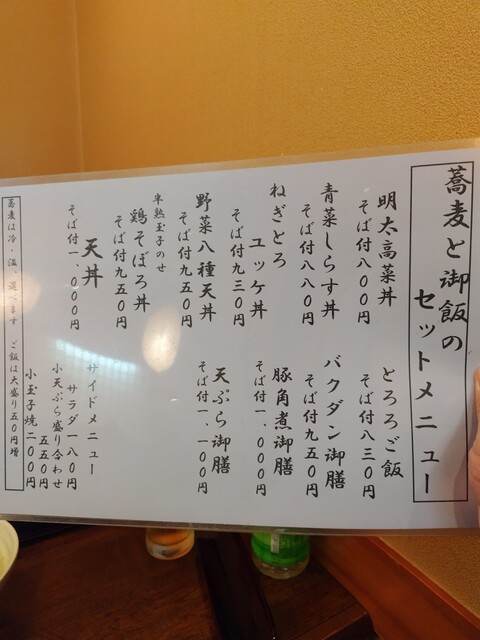 蕎麦と御飯の
セットメニュー
明太高菜丼
そば付八〇〇円
青菜しらす丼
そば付八八〇円
ねぎとろ
ユッケ丼
そば付九三〇円
野菜八種天丼
そば付九五〇円
半熟玉子のせ
鶏そぼろ丼
そば付九五〇円
天丼
そば付一、〇〇〇円
とろろご飯
そば付八三〇円
バクダン御膳
そば付九五〇円
豚角煮御膳
そば付一、〇〇〇円
天ぷら御膳
そば付一、一〇〇円
サイドメニュー
サラダ一八〇円
小天ぷら盛り合わせ
五五〇円
小玉子焼二〇〇円
蕎麦は冷・温、選べます ご飯は大盛り五〇円増